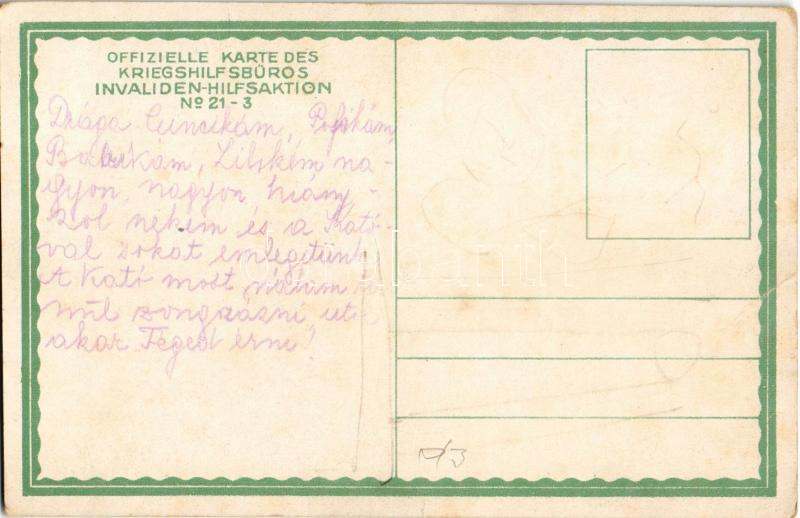 OFFIZIELLE KARTE DES
KRIEGSHILFSBÜROS
INVALIDEN-HILFSAKTION
Nº 21-3
Drága Cuncikám, Pofikám,
Babukám, Lilském na-
gyon, nagyon hiány-
zol nékem és a Kató-
val sokat emlegetünk.
A Kató most nálam
núl zongorázni, 
akar Téged érni!
darabanth